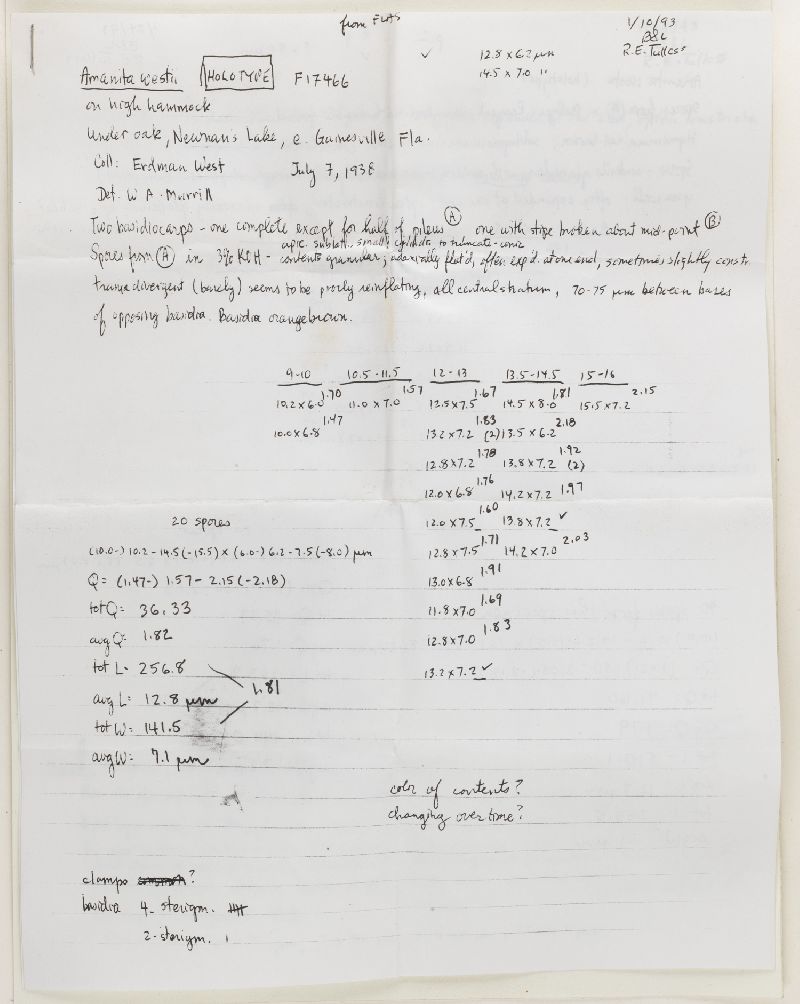 from FLAS
1/10/93
B&L
R.E. Tulloss
✓ 12.8 x 6.2 µm
14.5 x 7.0 "
Amanita westii HOLOTYPE F17466
on high hammock
under oak, Newnan's Lake, e. Gainesville Fla.
Coll: Erdman West July 7, 1938
Det. W A Murrill
Two basidiocarps - one complete except for half of pileus (A) one with stipe broken about mid-point (B)
apic. sublat., small, cylindric to truncate-conic
Spores from (A) in 3% KOH - contents granular; adaxially flat'd, often exp'd at one end, sometimes slightly constr.
trama divergent (barely) seems to be poorly reinflating, all central stratum, 70-75 µm between bases
of opposing basidia. Basidia orange brown.
9-10 10.5-11.5 12-13 13.5-14.5 15-16
10.2 x 6.0 1.70 11.0 x 7.0 1.57 12.5 x 7.5 1.67 14.5 x 8.0 1.81 15.5 x 7.2 2.15
10.0 x 6.8 1.47 13.2 x 7.2 1.83 (2) 13.5 x 6.2 2.18
12.8 x 7.2 1.78 13.8 x 7.2 1.92 (2)
12.0 x 6.8 1.76 14.2 x 7.2 1.97
12.0 x 7.5 1.60 13.8 x 7.2 ✓
12.8 x 7.5 1.71 14.2 x 7.0 2.03
13.0 x 6.8 1.91
11.8 x 7.0 1.69
12.8 x 7.0 1.83
13.2 x 7.2 ✓
20 spores
(10.0-) 10.2 - 14.5 (-15.5) x (6.0-) 6.2 - 7.5 (-8.0) µm
Q = (1.47-) 1.57 - 2.15 (-2.18)
tot Q: 36.33
avg Q: 1.82
tot L: 256.8
1.81
avg L: 12.8 µm
tot W: 141.5
avg W: 7.1 µm
color of contents?
changing over time?
clamps ?
basidia 4-sterigm. ||||
2-sterigm. |